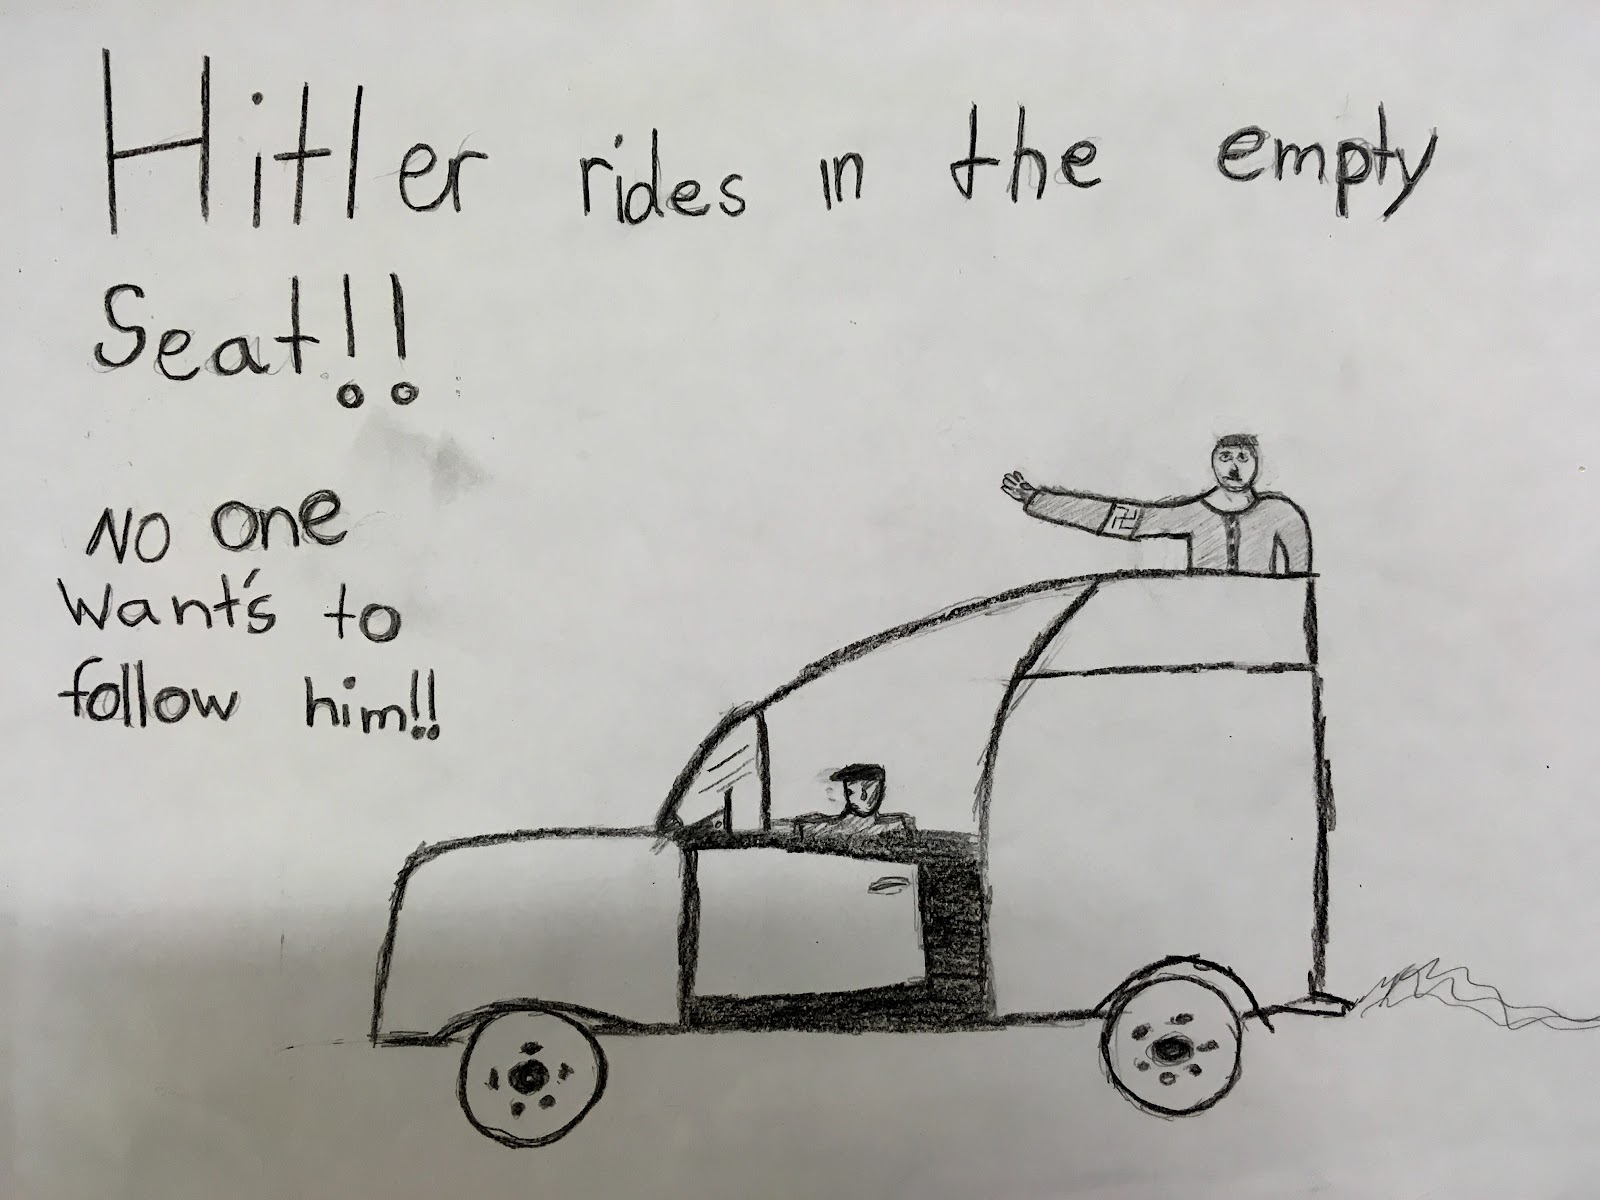 Hitler rides in the empty
Seat!!
No one
Want's to
follow him!!